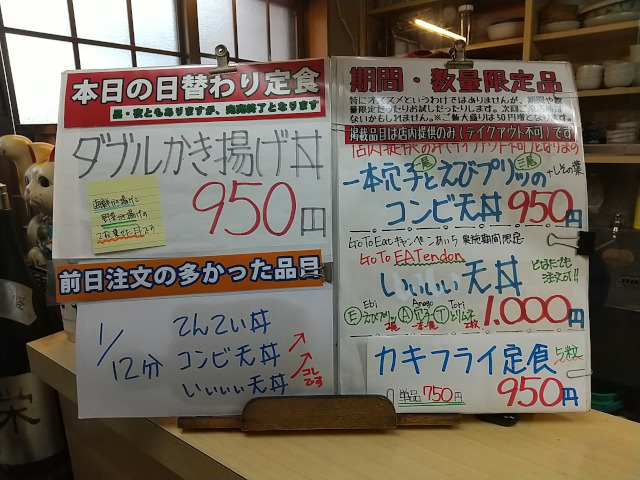 本日の日替わり定食
昼・夜ともありますが、完売終了となります
ダブルかき揚げ丼
950円
海鮮かき揚げと
野菜かき揚げの
2枚乗せた丼です
前日注文の多かった品目
1/12分
てんてい丼
コンビ天丼
いいいい天丼
コレです
期間・数量限定品
特にオススメというわけではありませんが、期間や数
量限定だったりお試しだったりします。次回ご
ないかもしれません。※ご飯大盛りは50円増となります。
掲載品目は店内提供のみ(テイクアウト不可)です
一本穴子とえびプリッの
コンビ天丼 950円
+しその葉
GoToEatキャンペーンあいち 実施期間限定
GoTo EATendon
いいいい天丼
どなたでも
注文可!!
Ebi Anago Tori
1,000円
カキフライ定食 5粒
単品750円
950円